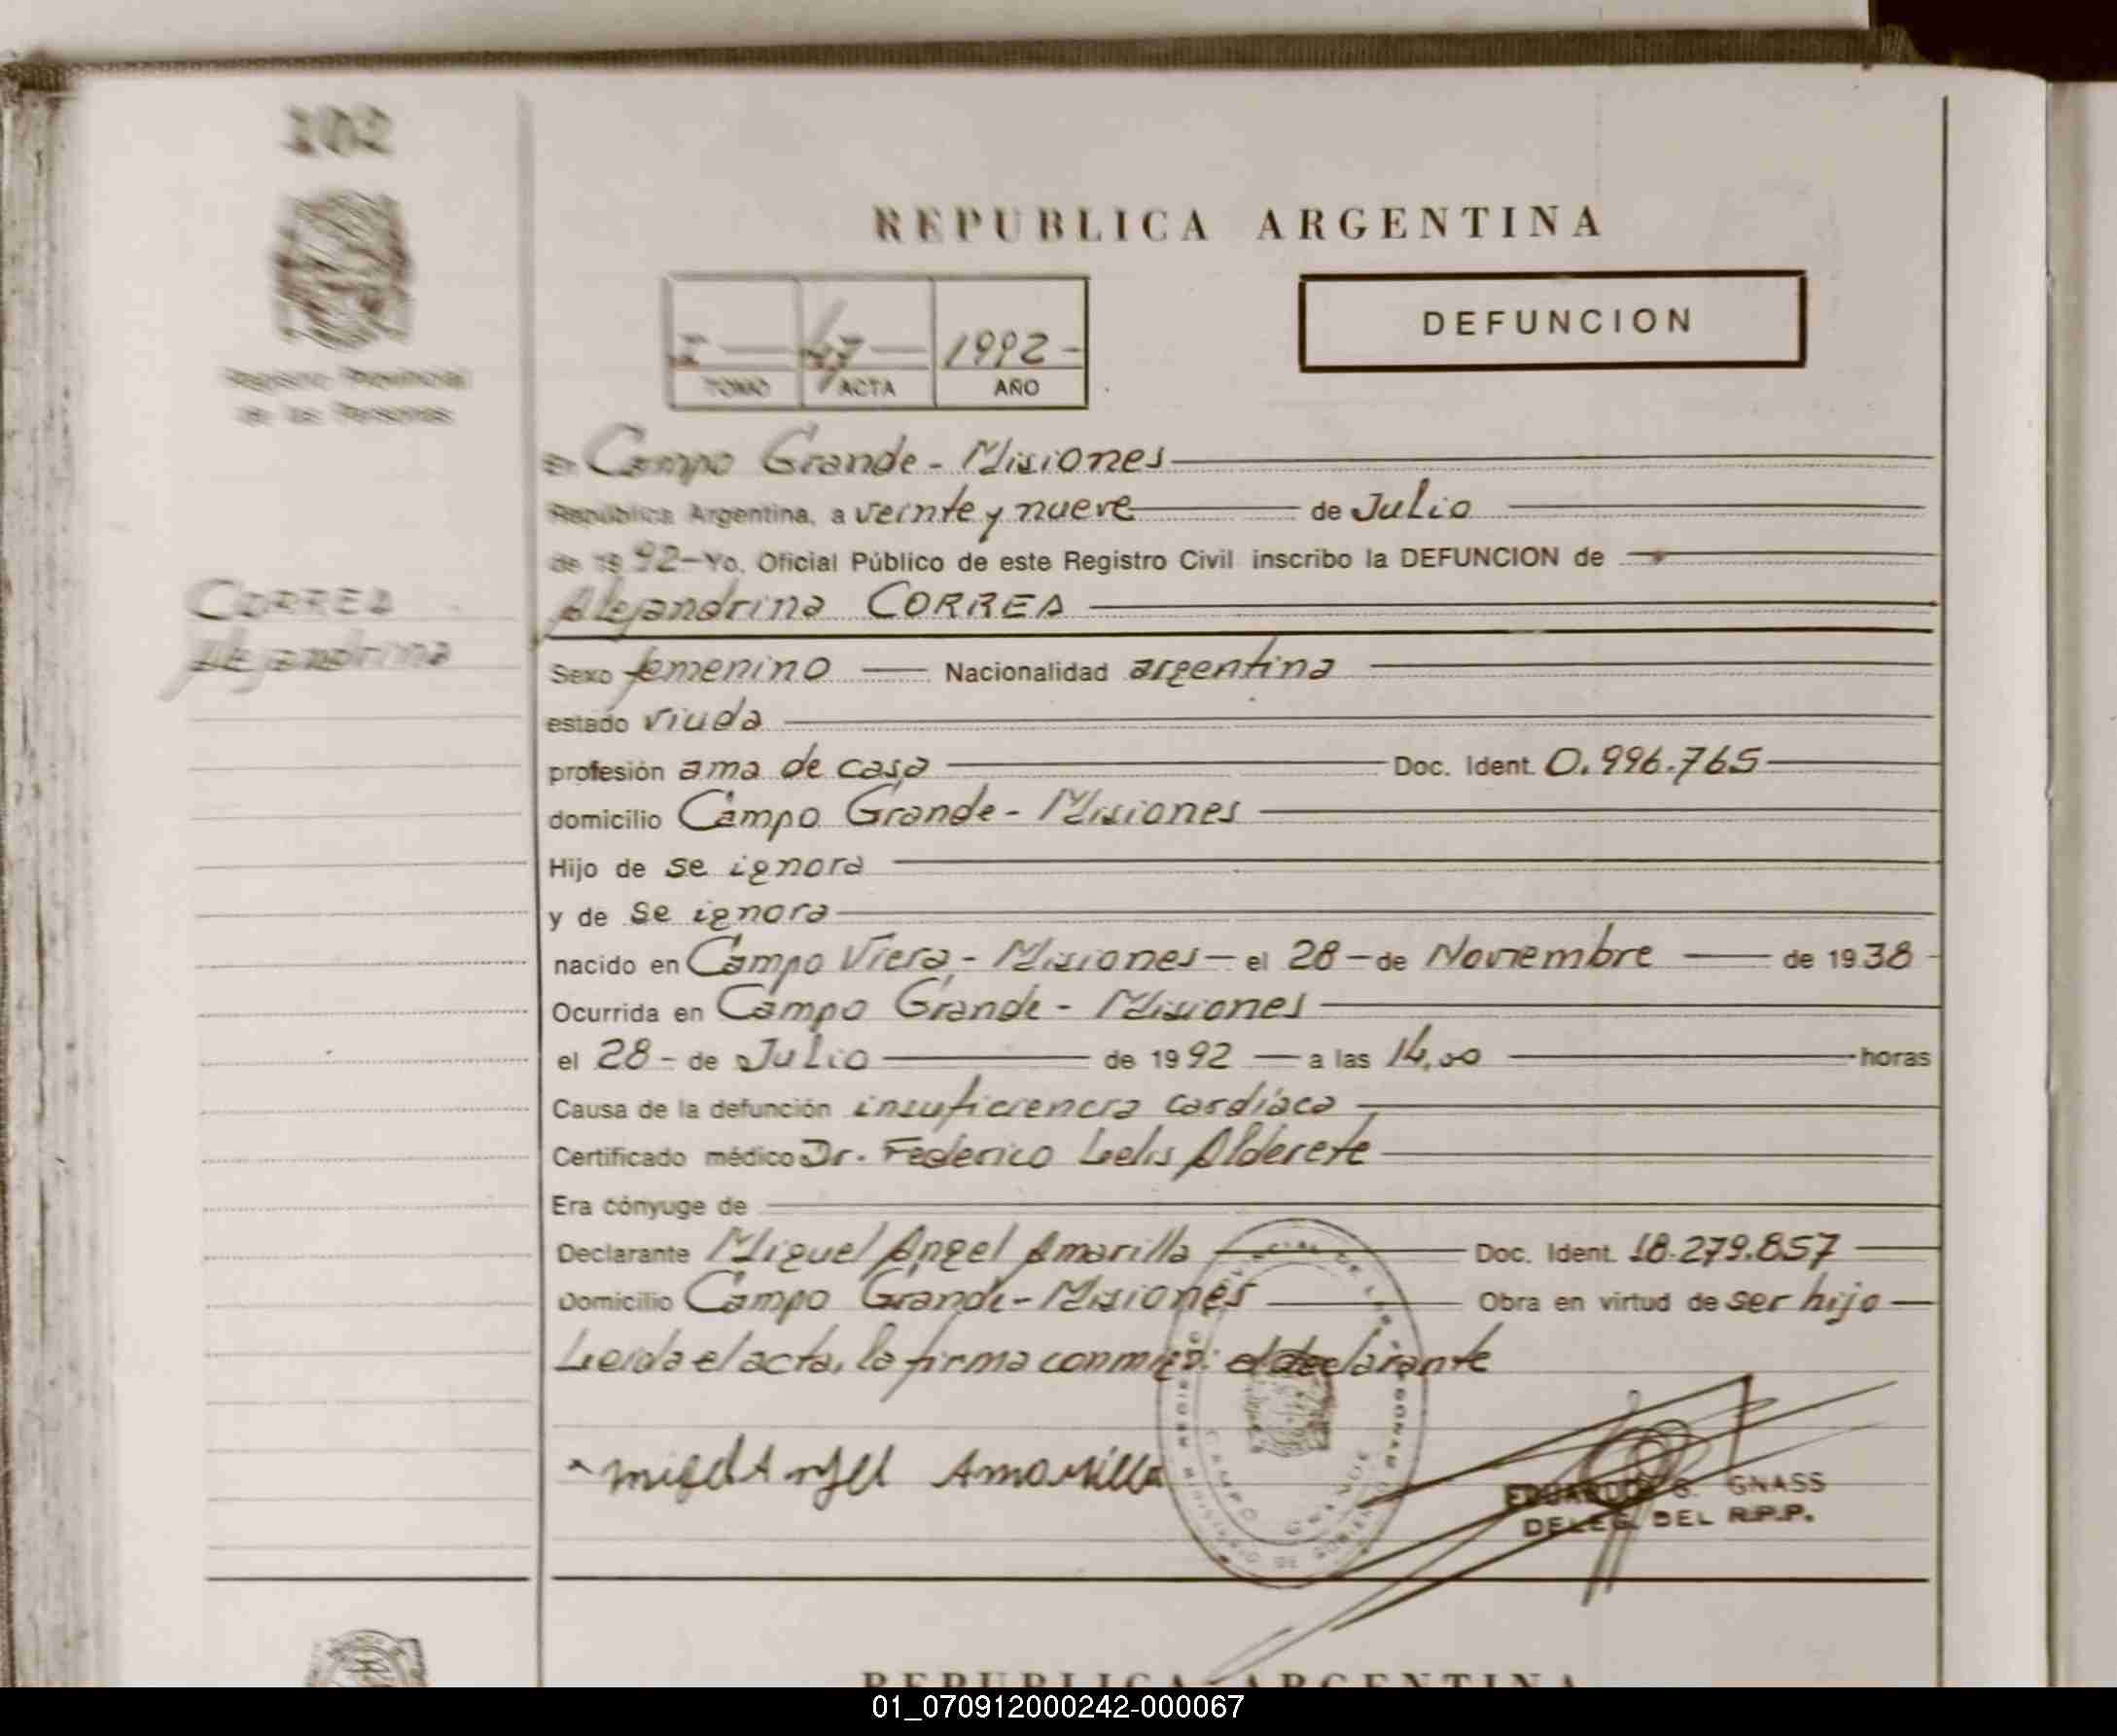 102
REPUBLICA ARGENTINA
DEFUNCION
I 47 1992-
TOMO ACTA AÑO
Registro Provincial
de las Personas
en Campo Grande - Misiones
República Argentina, a veinte y nueve de Julio
de 19 92 - Yo, Oficial Público de este Registro Civil inscribo la DEFUNCION de
Alejandrina CORREA
CORREA
Alejandrina
Sexo femenino Nacionalidad argentina
estado viuda
profesión ama de casa Doc. Ident. 0.996.765
domicilio Campo Grande - Misiones
Hijo de se ignora
y de se ignora
nacido en Campo Viera - Misiones - el 28 - de Noviembre de 19 38
Ocurrida en Campo Grande - Misiones
el 28 - de Julio de 19 92 a las 14,00 horas
Causa de la defunción insuficiencia cardíaca
Certificado médico Dr. Federico Lelis Alderete
Era cónyuge de
Declarante Miguel Angel Amarilla Doc. Ident. 18.279.857
Domicilio Campo Grande - Misiones Obra en virtud de ser hijo
Leida el acta, la firma conmigo: el declarante
Amarilla
EDUARDO G. GNASS
DELEG. DEL R.P.P.
CAMPO GRANDE
REPUBLICA ARGENTINA
01_070912000242-000067